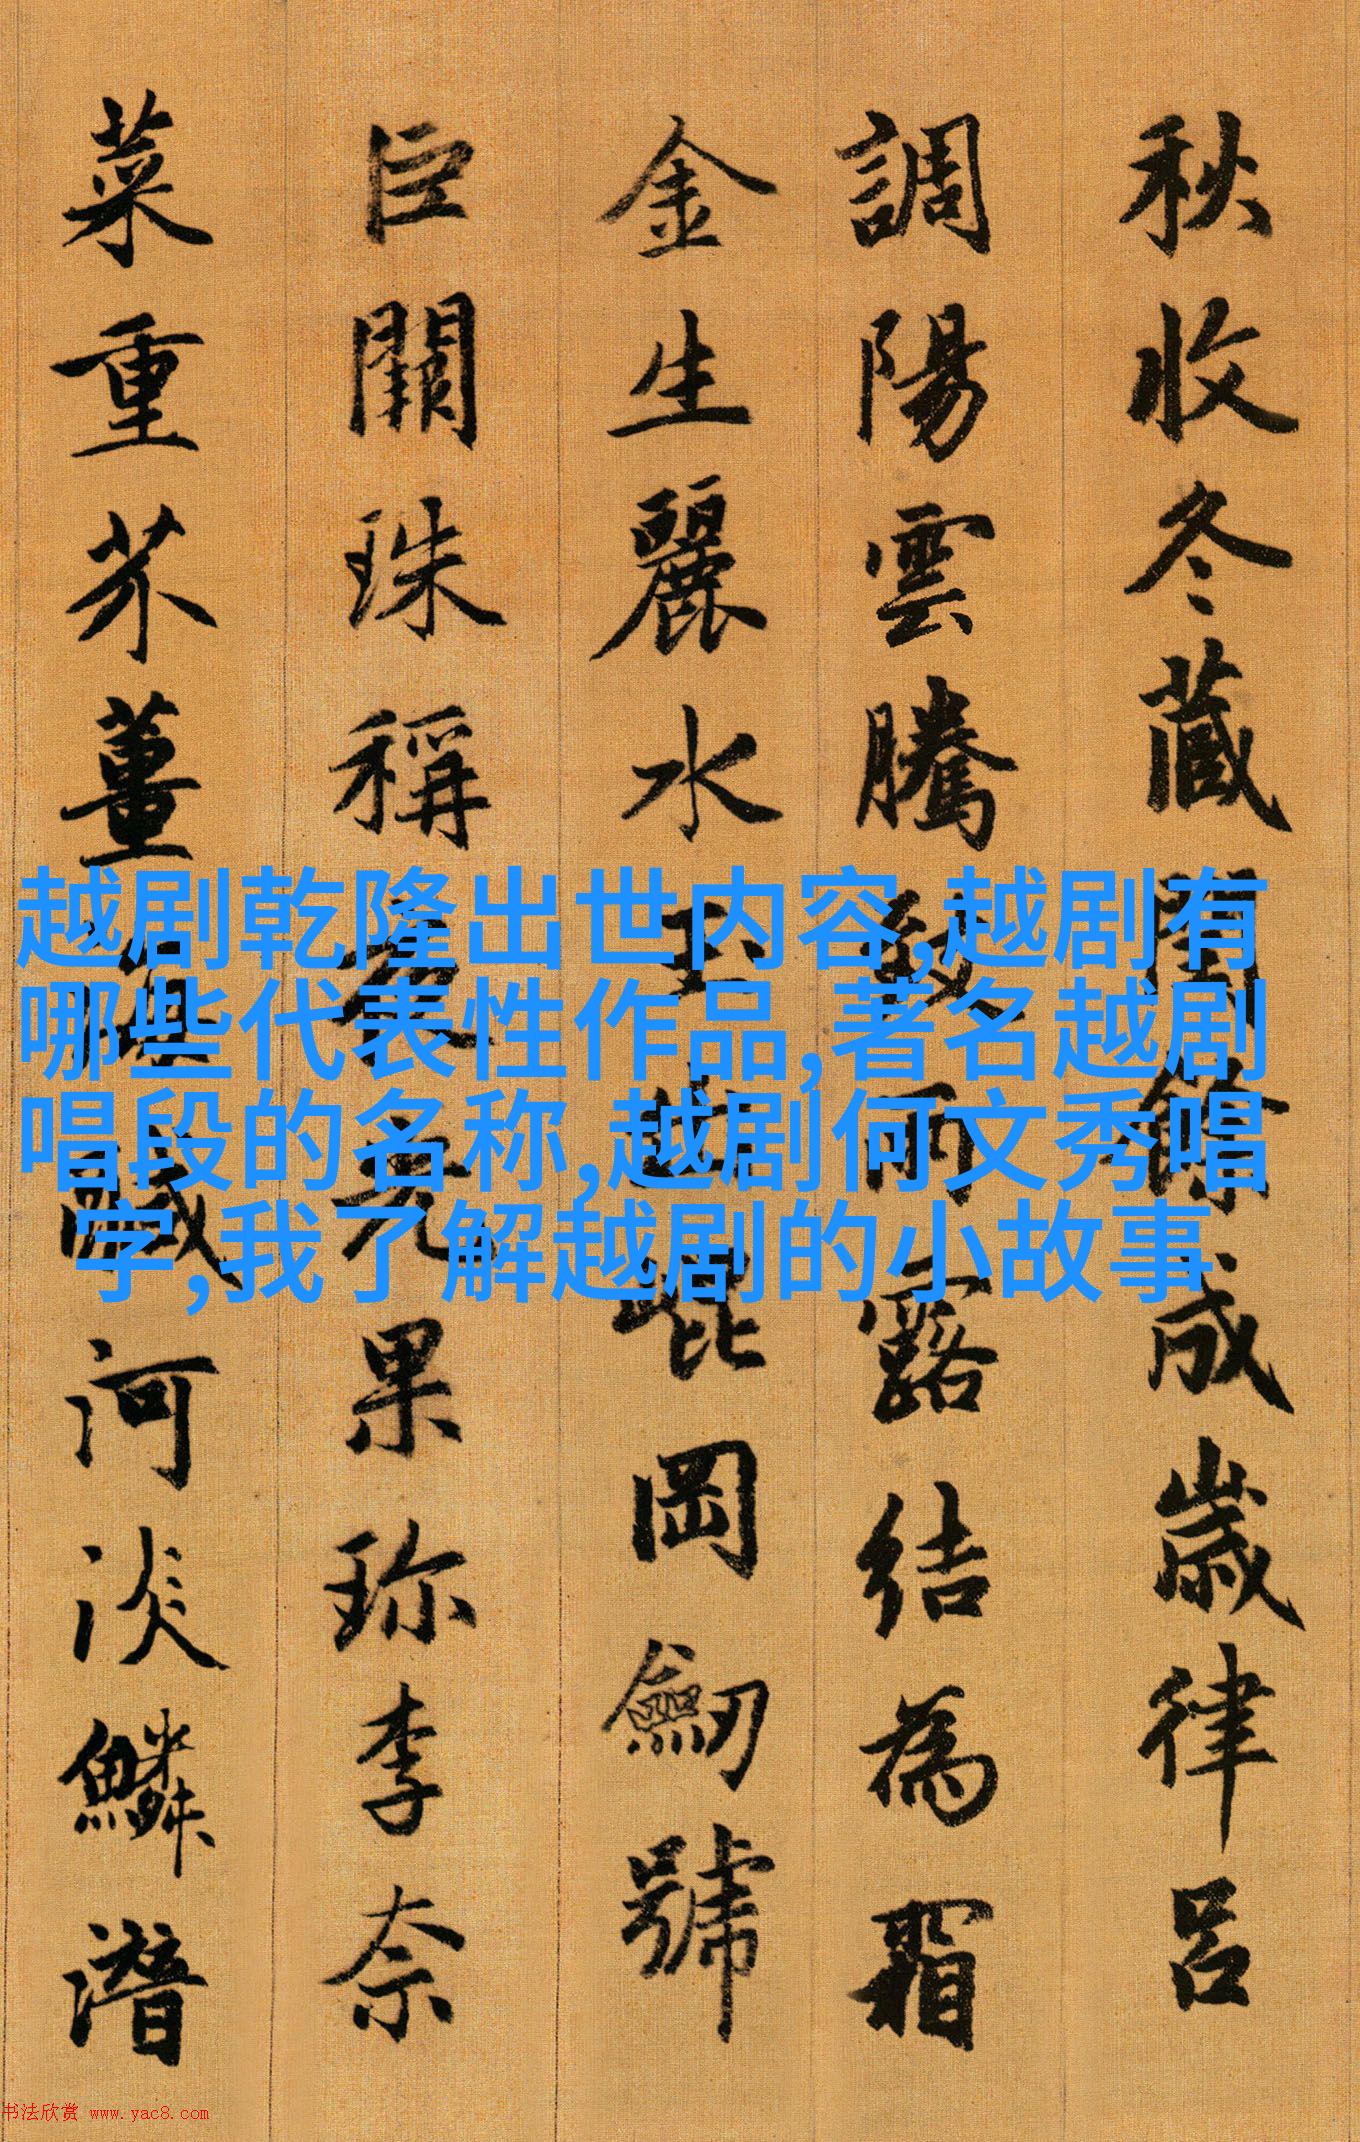 秋收冬藏閏餘成歲律呂
調陽雲騰致雨露結為霜
金生麗水玉出崐岡劒號
巨闕珠稱夜光果珍李奈
菜重芥薑海鹹河淡鱗潛
越剧乾隆出世内容,越剧有
哪些代表性作品,著名越剧
唱段的名称,越剧何文秀唱
字,我了解越剧的小故事
书法欣赏 www.yac8.com